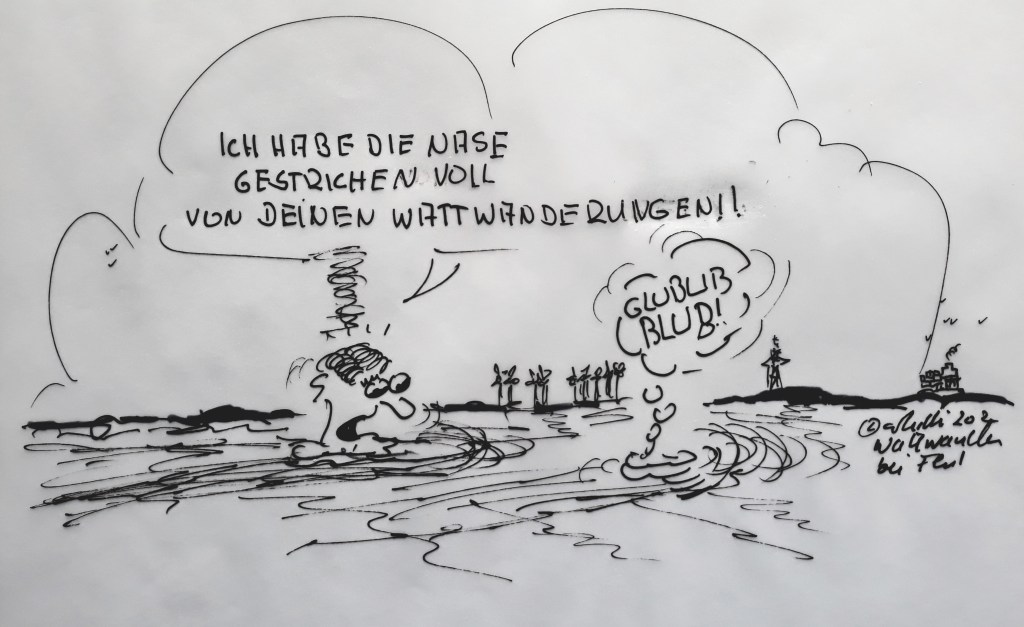 ICH HABE DIE NASE
GESTRICHEN VOLL
VON DEINEN WATTWANDERUNGEN!!
GLUBUB
BLUB!!
©
Wattwandern
bei Flut